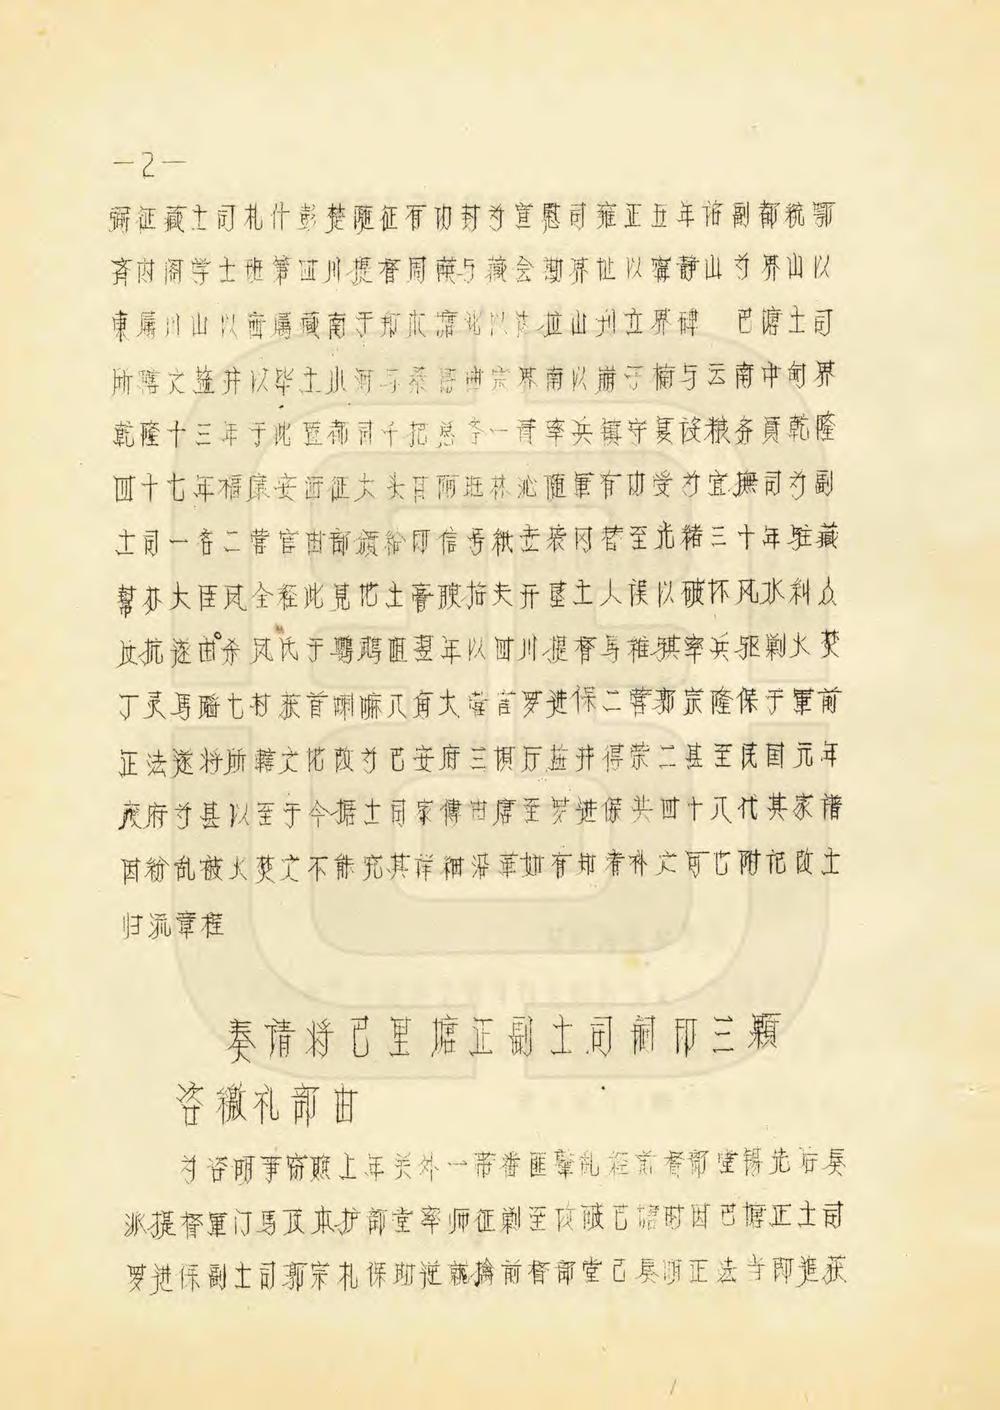 —2—
弼征藏土司札什彭楚随征有功封为宣慰司雍正五年诏副都统鄂
斉内阁学士班第四川提督周瑛与藏会勘界址以甯静山为界山以
東属川山以西属藏南于邦木塘北以达拉山刋立界碑 巴塘土司
所轄文盐井以毕土小河与桑昂曲宗界南以崩子楠与云南中甸界
乾隆十三年于此置都司千把总各一員率兵镇守复设粮务員乾隆
四十七年福康安西征大头目阿旺林沁随軍有功受为宣撫司为副
土司一各二营官由部颁给印信号紙世袭罔替至光緒三十年驻藏
幫办大臣凤全经此見地土膏腴招夫开垦土人误以破坏风水糾众
反抗遂由杀凤氏于鹦鹉咀翌年以四川提督馬維騏率兵驱剿火焚
丁灵馬踏七村获首喇嘛八角大营官罗进保二营郭宗隆保于軍前
正法遂将所轄之地改为巴安府三坝厅盐井得荣二县至民国元年
废府为县以至于今据土司家傳由唐至罗进保共四十八代其家谱
因纷乱被火焚之不能究其详细沿革如有知者补之可也附记改土
归流章程
奏请将巴里塘正副土司铜印三顆
咨繳礼部甘
为咨明事窃照上年关外一带番匪肇乱经前督部堂锡先后奏
派提督軍门馬及本护部堂率师征剿至攻破巴塘时因巴塘正土司
罗进保副土司郭宗札保助逆就擒前督部堂已奏明正法当即追获